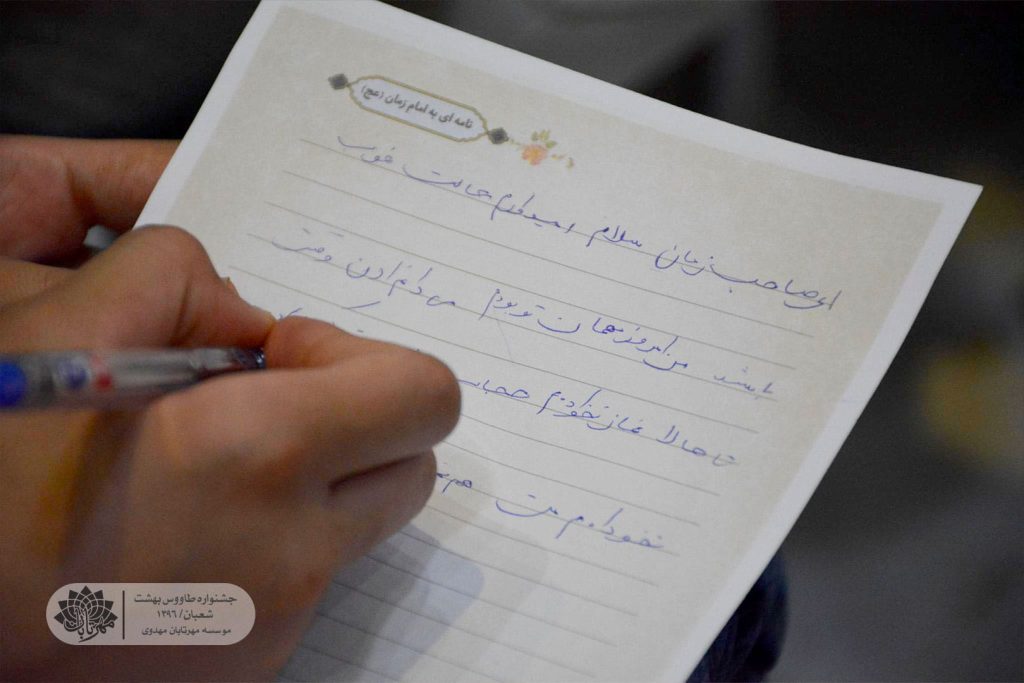 نامه ای به امام زمان (عج)
ای صاحب زمان سلام امیدوارم حالت خوب
باشد من امروز مهمان تو بودم می دانم ادن وقت
تا حالا نماز نخواندم حجاب
هم
جشنواره طاووس بهشت
شعبان/ ۱۳۹۶
موسسه مهرتابان مهدوی
مهرتابان